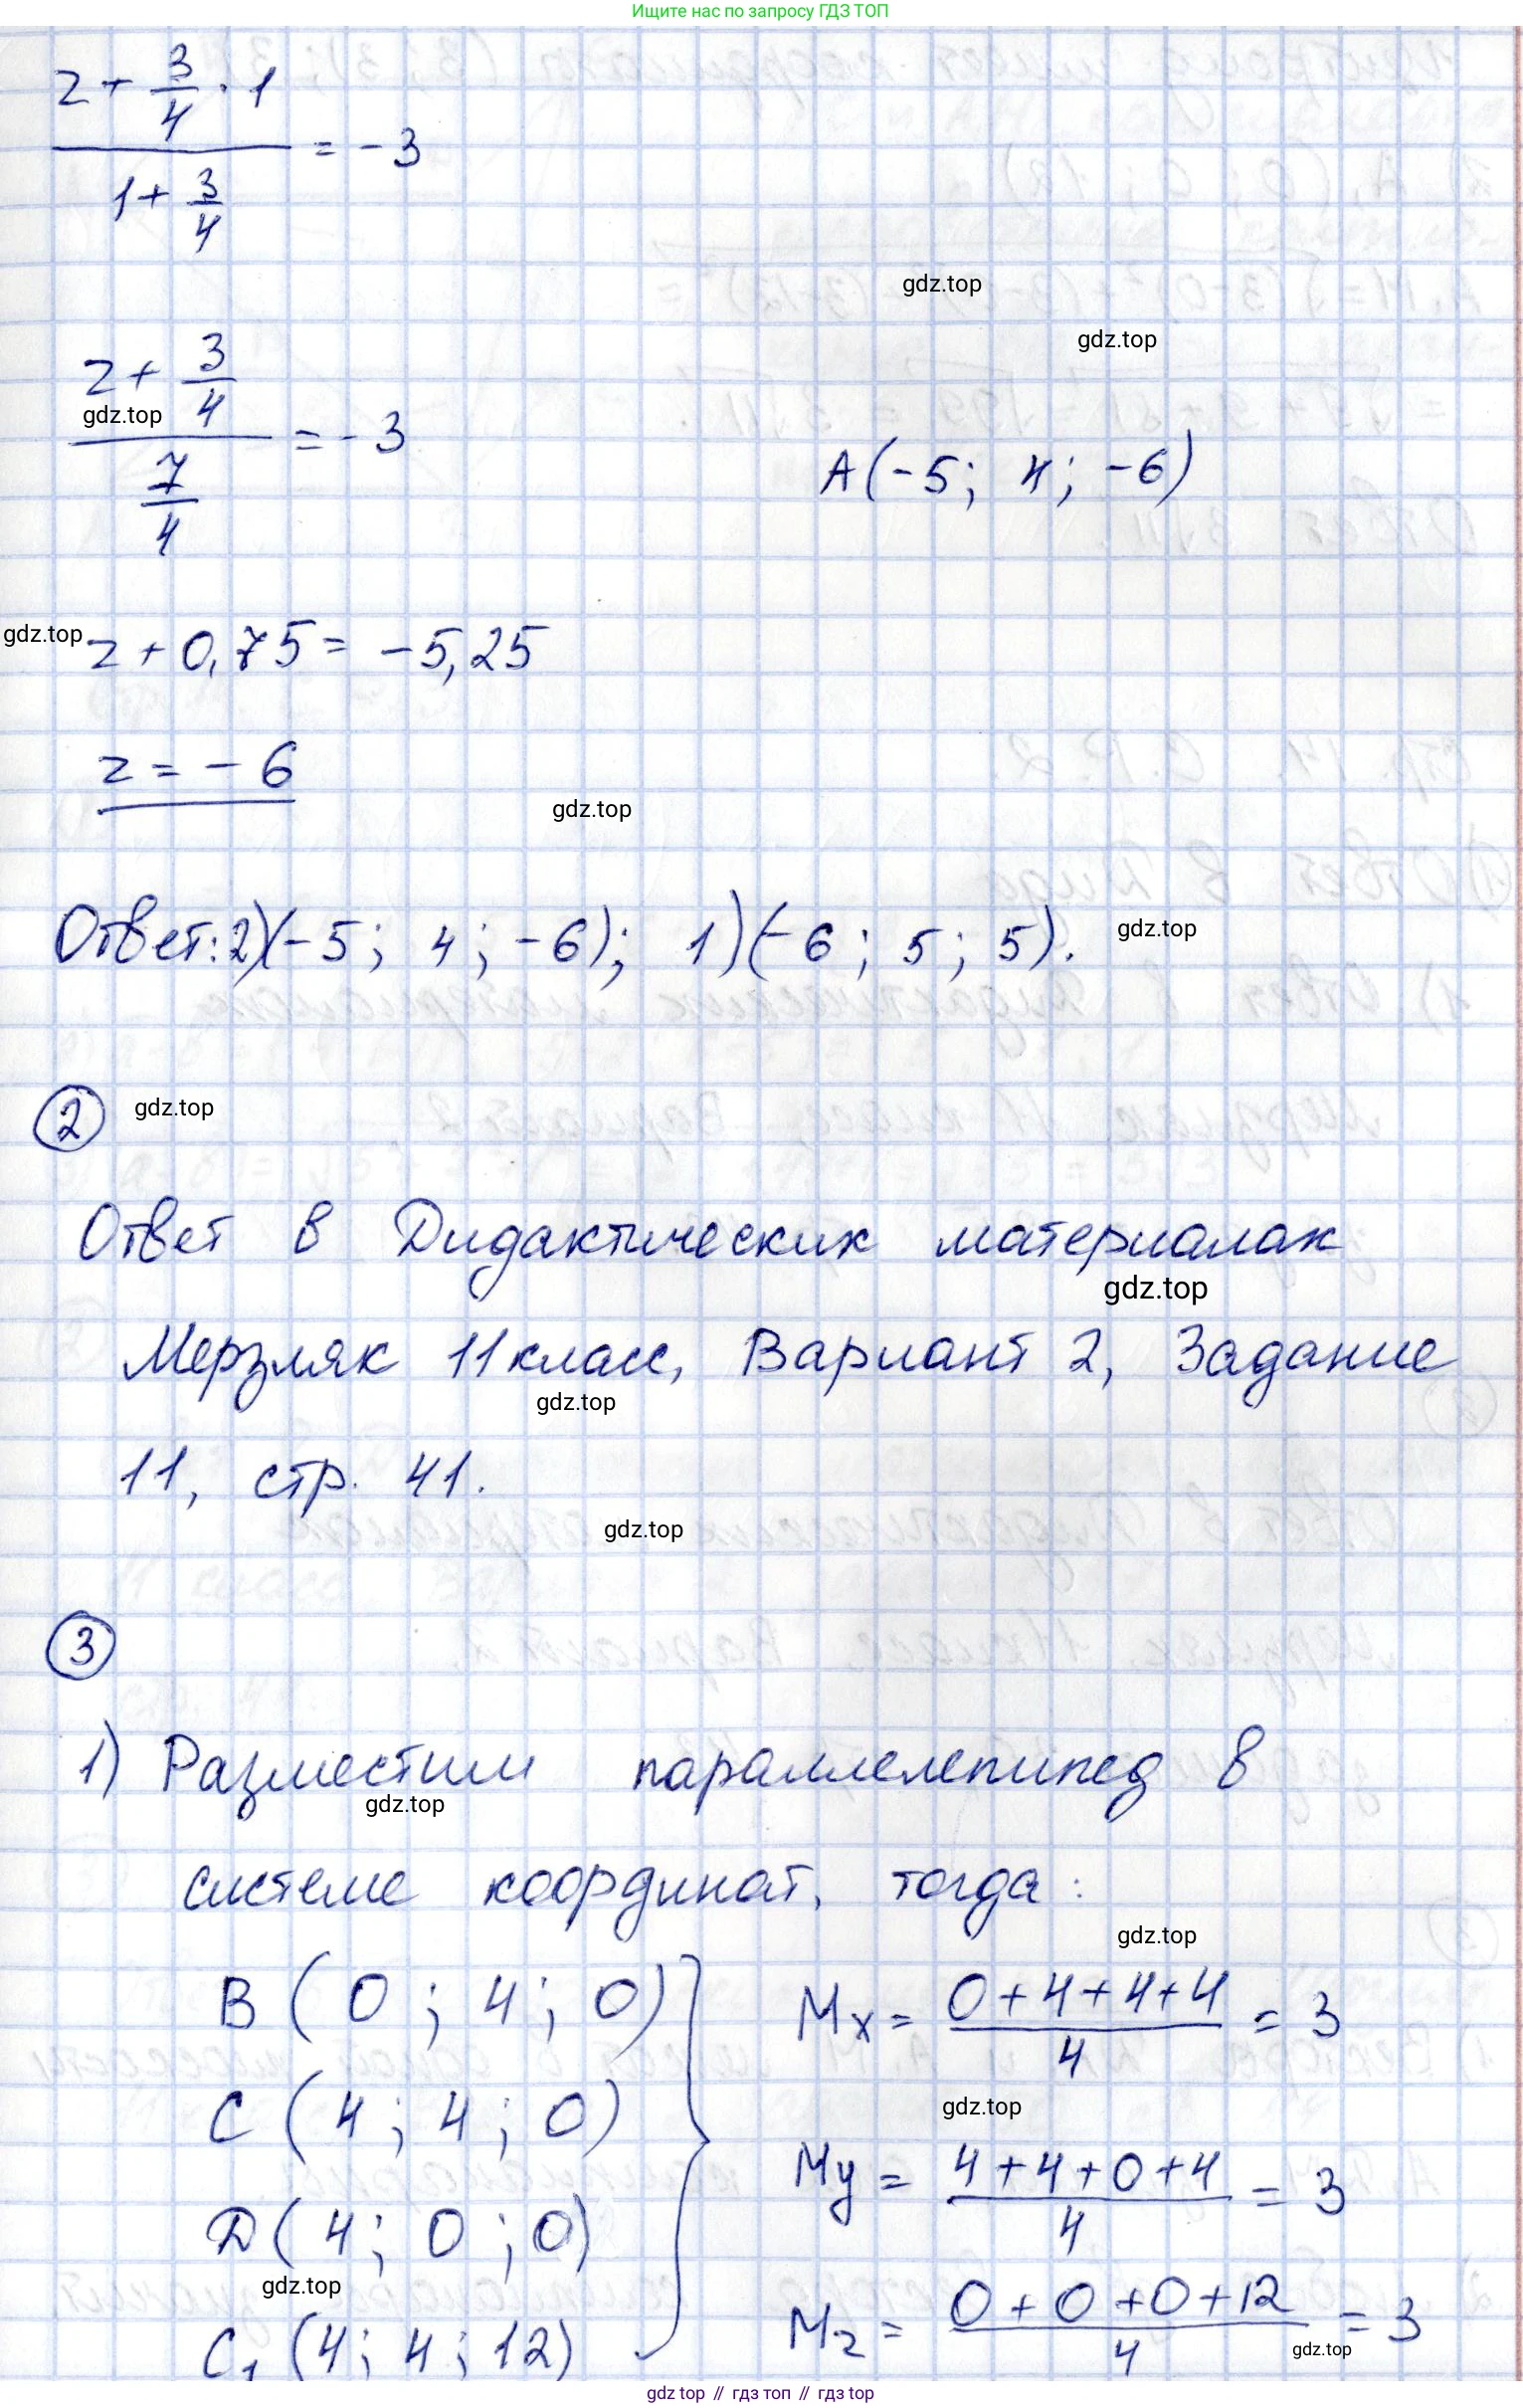 Ищите нас по запросу ГДЗ ТОП
z + 3/4 · 1
/ 1 + 3/4 = -3
gdz.top
gdz.top
z + 3/4
gdz.top
/ 7/4 = -3
A(-5; 4; -6)
gdz.top
z + 0,75 = -5,25
z = -6
gdz.top
Ответ: 2)(-5; 4; -6); 1)(-6; 5; 5).
gdz.top
2
gdz.top
Ответ в Дидактических материалах
gdz.top
Мерзляк 11 класс, Вариант 2, Задание
gdz.top
11, стр. 41.
gdz.top
3
1) Разместим параллелепипед в
gdz.top
системе координат, тогда:
gdz.top
B (0; 4; 0)
Mx = (0+4+4+4)/4 = 3
C (4; 4; 0)
gdz.top
My = (4+4+0+4)/4 = 3
D (4; 0; 0)
gdz.top
Mz = (0+0+0+12)/4 = 3
gdz.top
C1 (4; 4; 12)
gdz.top // гдз топ // гдз top